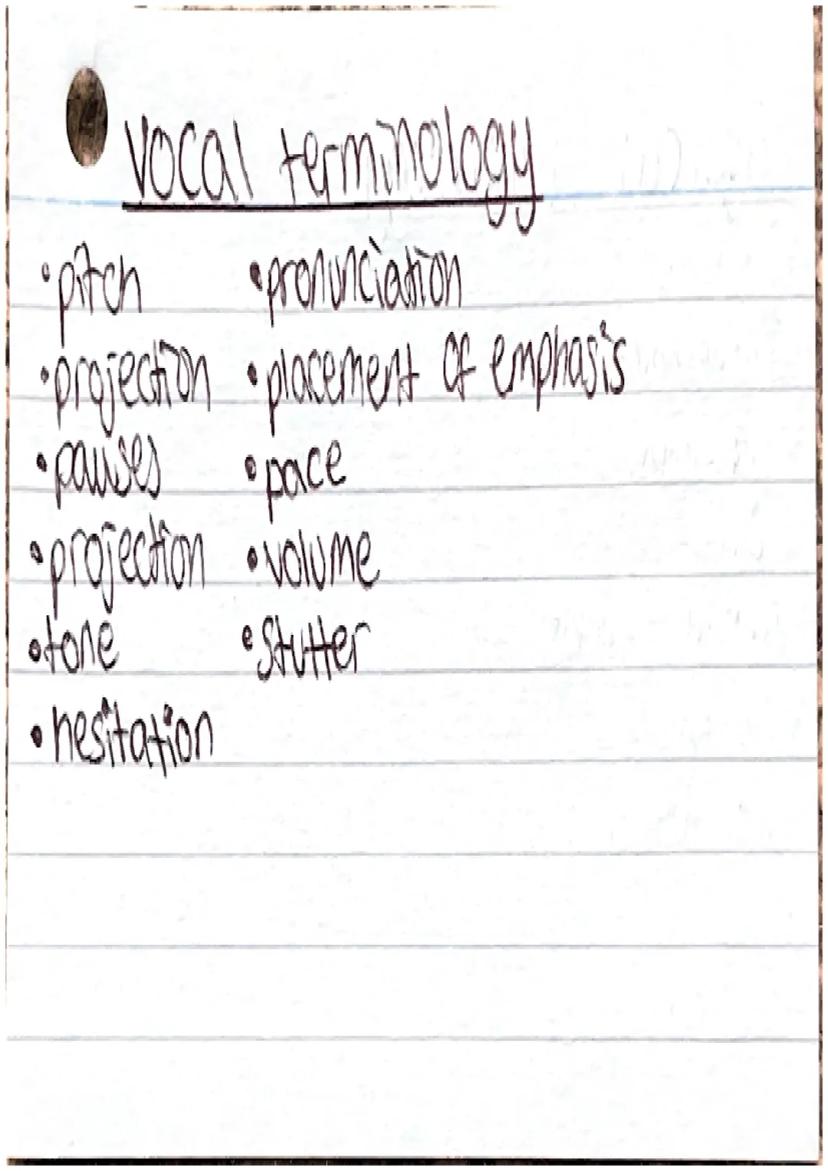 vocal terminology
• pitch • pronunciation
• projection • placement of emphasis
• pauses • pace
• projection • volume
• tone • stutter
• hesitation